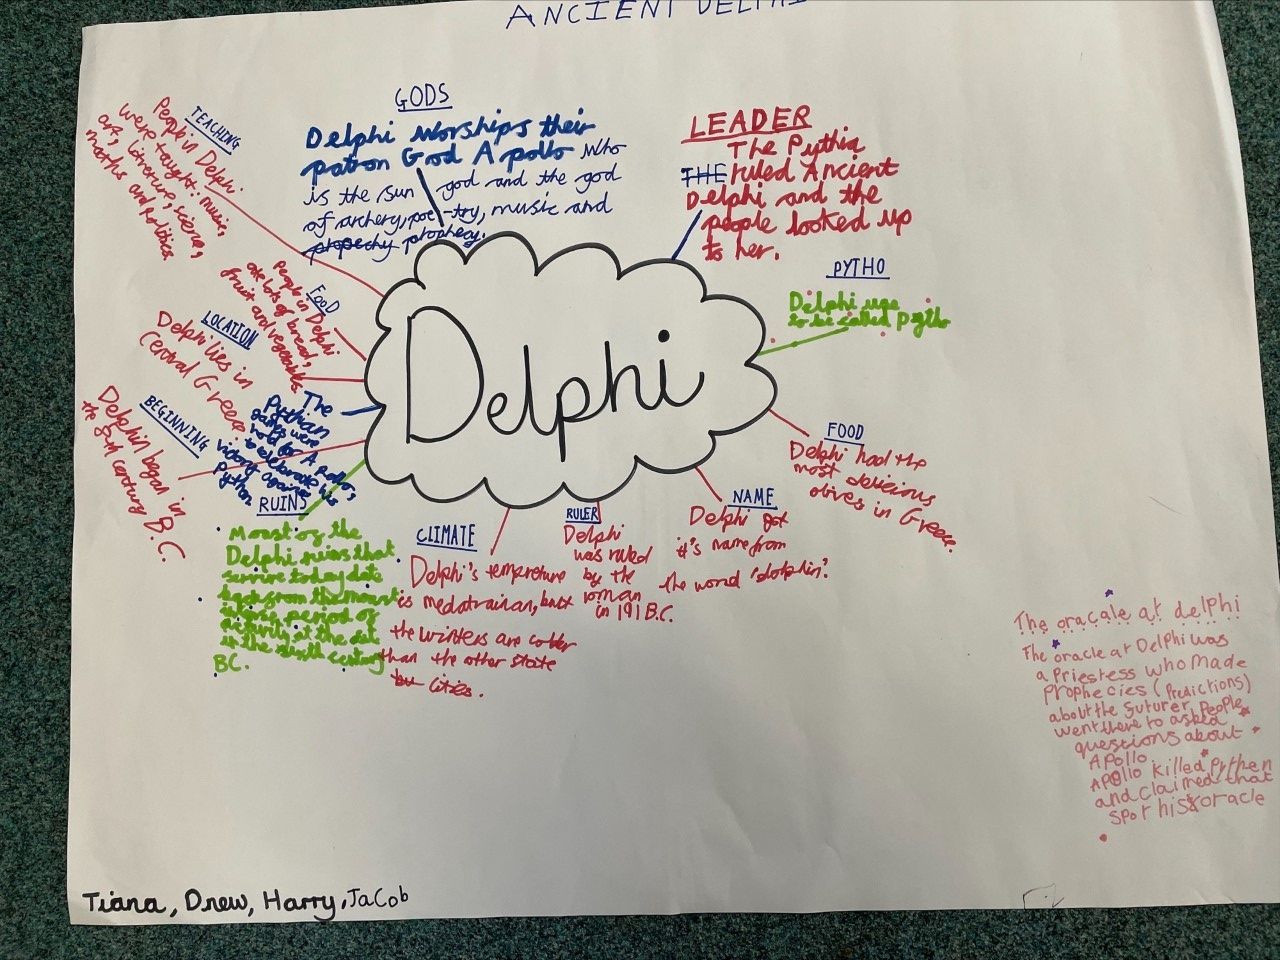 ANCIENT DELPHI
GODS
Delphi worships their
patron God Apollo who
is the sun god and the god
of archery, poe-try, music and
propechy prophecy.
LEADER
The Pythia
THE ruled Ancient
Delphi and the
people looked up
to her.
TEACHING
People in Delphi
were taught: music,
art, literature, science,
maths and politics
PYTHO
Delphi use
to be called Pytho
FOOD
People in Delphi
ate lots of bread,
fruit and vegetables
LOCATION
Delphi lies in
Central Greece
The
Pythian
games were
held for Apollo,
to celebrate his
victory against
python
BEGINNING
Delphin began in
the century B.C.
Delphi
FOOD
Delphi had the
most delicious
olives in Greece.
NAME
Delphi got
it's name from
the word 'dolphin'.
RULER
Delphi
was ruled
by the
roman
in 191 B.C.
CLIMATE
Delphi's tempreture
is medatrainan, but
the winters are colder
than the other state
cities.
RUINS
Moust of the
Delphi ruins that
survive today date
back from the mount
period of
activity at the
in the sixth century
BC.
The oracale at delPhi
The oracle at Delphi was
a Priestess who made
Prophecies (Predictions)
about the futurer. People
went there to asked
questions about
APollo.
APollo killed Pythen
and claimed that
spot his oracle
Tiana, Drew, Harry, JaCob